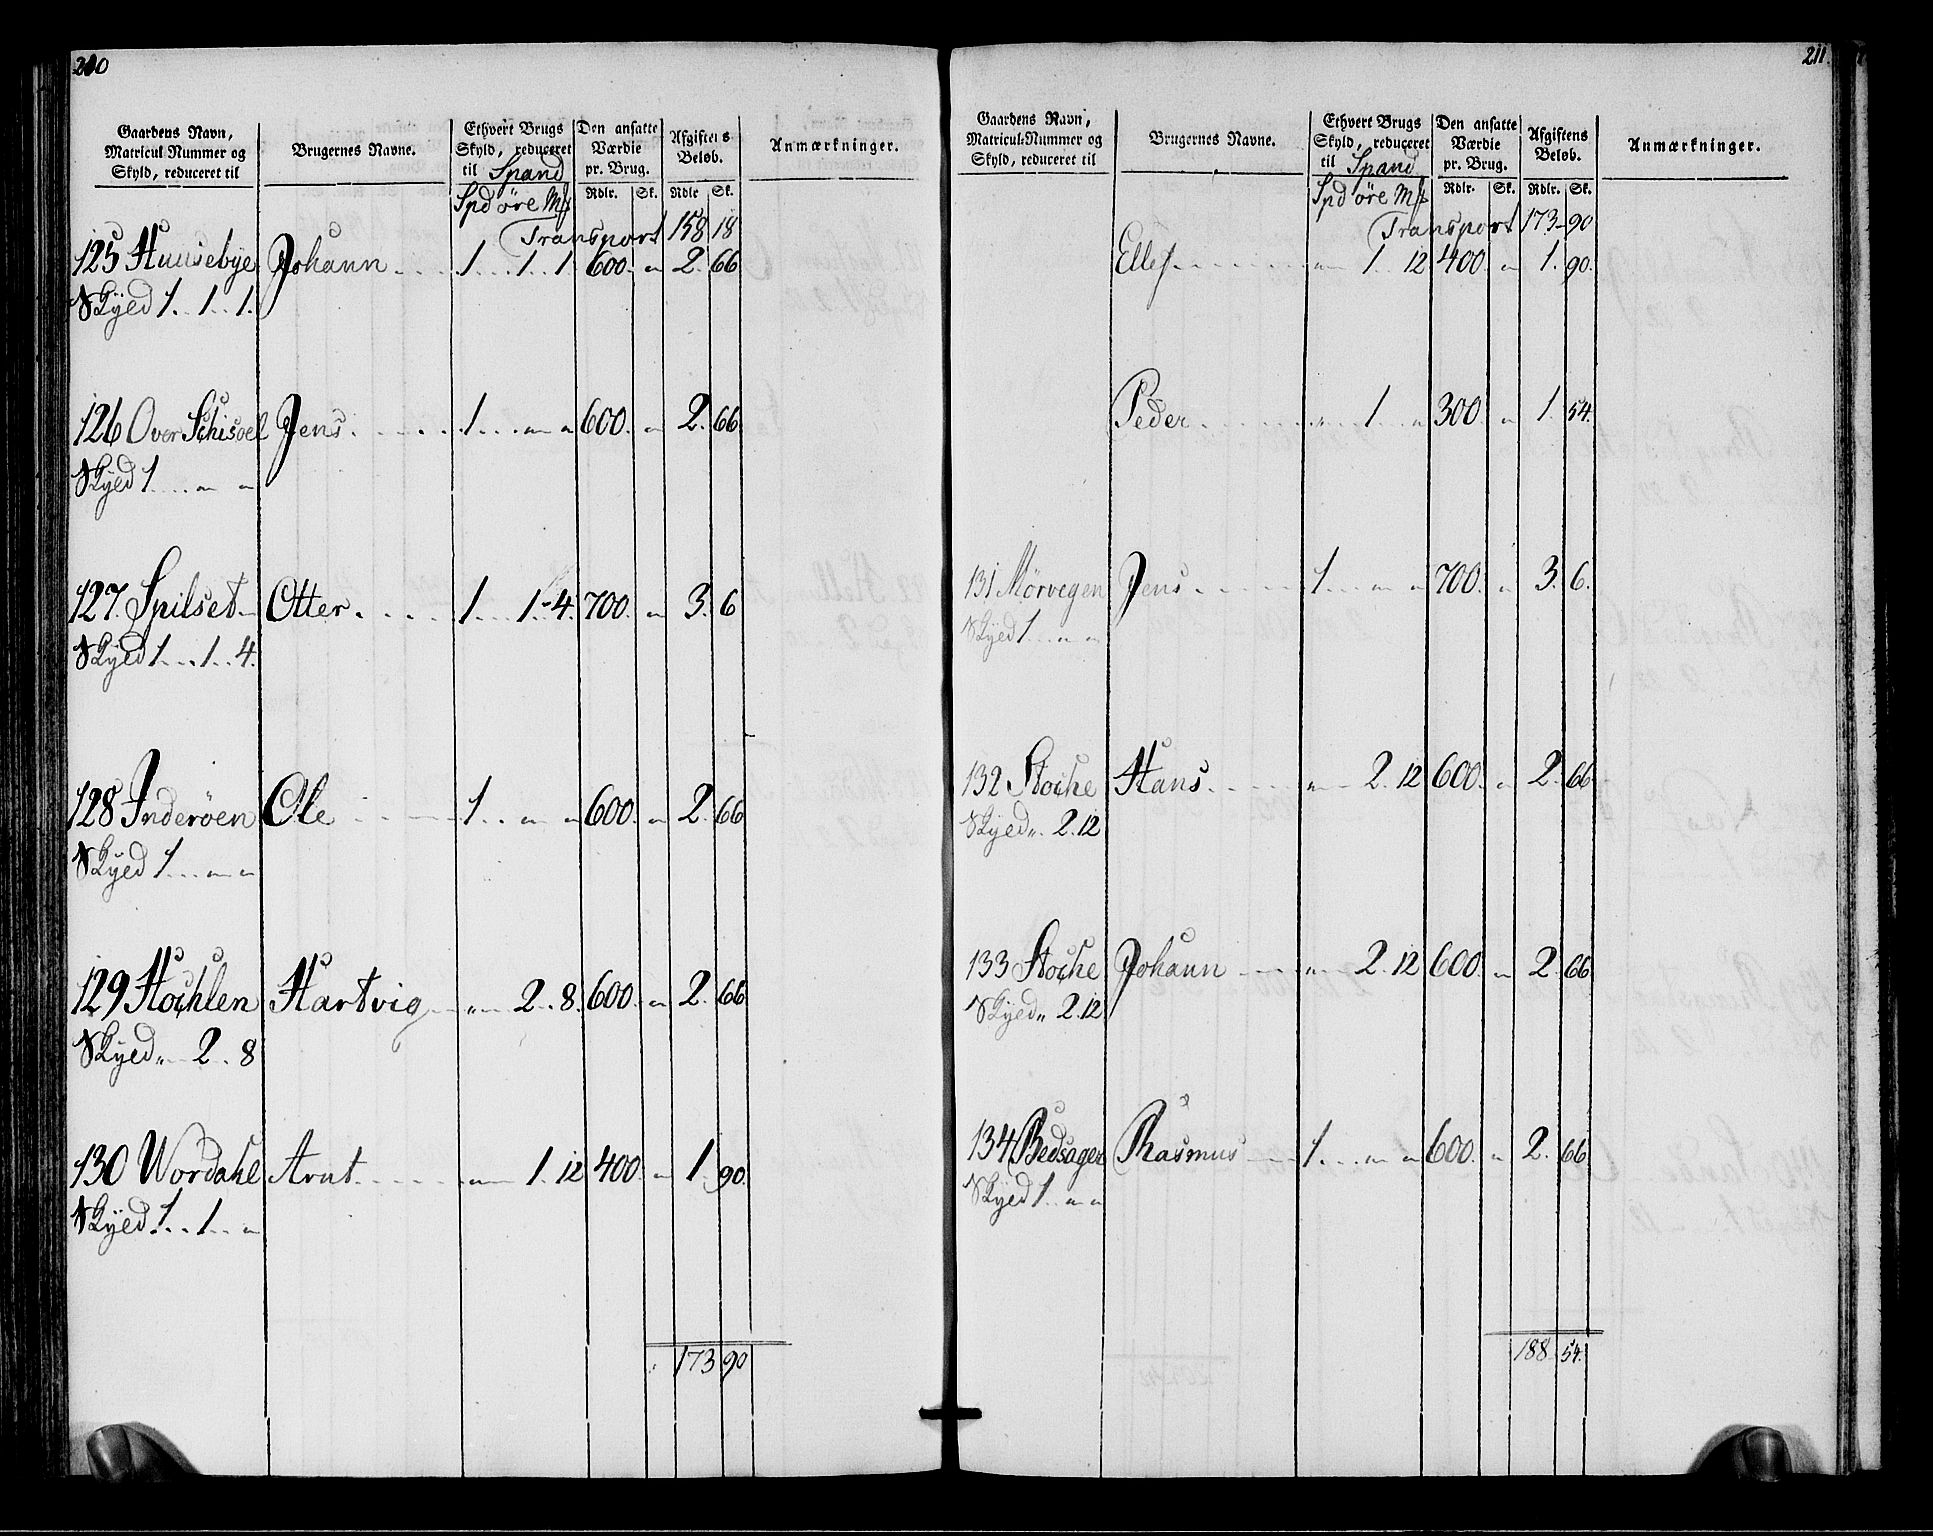 210
Gaardens Navn, Matricul Nummer og Skyld, reduceret til
Brugernes Navne.
Ethvert Brugs Skyld, reduceret til Spand
Den ansatte Værdie pr. Brug.
Afgiftens Beløb.
Anmærkninger.
Spd öre Mk
Rdlr. Sk. Rdlr Sk.
Transport 158 18
125 Huusebye Johann 1 1 1 600 " 2 66
Skyed 1. 1. 1.
126 Over Schisoel Jens 1 " " 600 " 2. 66
Skyed 1 " "
127. Spilset Otter 1 1 4. 700 " 3. 6
Skyed 1 1 4.
128 Inderöen Ole 1 " " 600 " 2. 66
Skyed 1 " "
129 Hochlen Hartvig " 2 8. 600 " 2. 66
Skyed " 2. 8
130 Wordahl Arnt " 1. 12 400 " 1. 90.
Skyed 1. 1. "
173 90
211.
Gaardens Navn, Matricul-Nummer og Skyld, reduceret til
Brugernes Navne.
Ethvert Brugs Skyld, reduceret til Spand
Den ansatte Værdie pr. Brug.
Afgiftens Beløb.
Anmærkninger.
Spd öre Mk
Rdlr. Sk. Rdlr. Sk.
Transport 173 90
Ellef " 1 12 400 " 1. 90.
Peder " 1 " 300 " 1. 54.
131 Mörvegen Jens 1 " " 700 " 3. 6.
Skyed 1 " "
132 Stoche Hans " 2. 12 600 " 2. 66
Skyed " 2. 12
133 Stoche Johann " 2. 12 600 " 2. 66
Skyed " 2. 12
134 Bedsagen Rasmus 1 " " 600 " 2. 66
Skyed 1 " "
188 54.